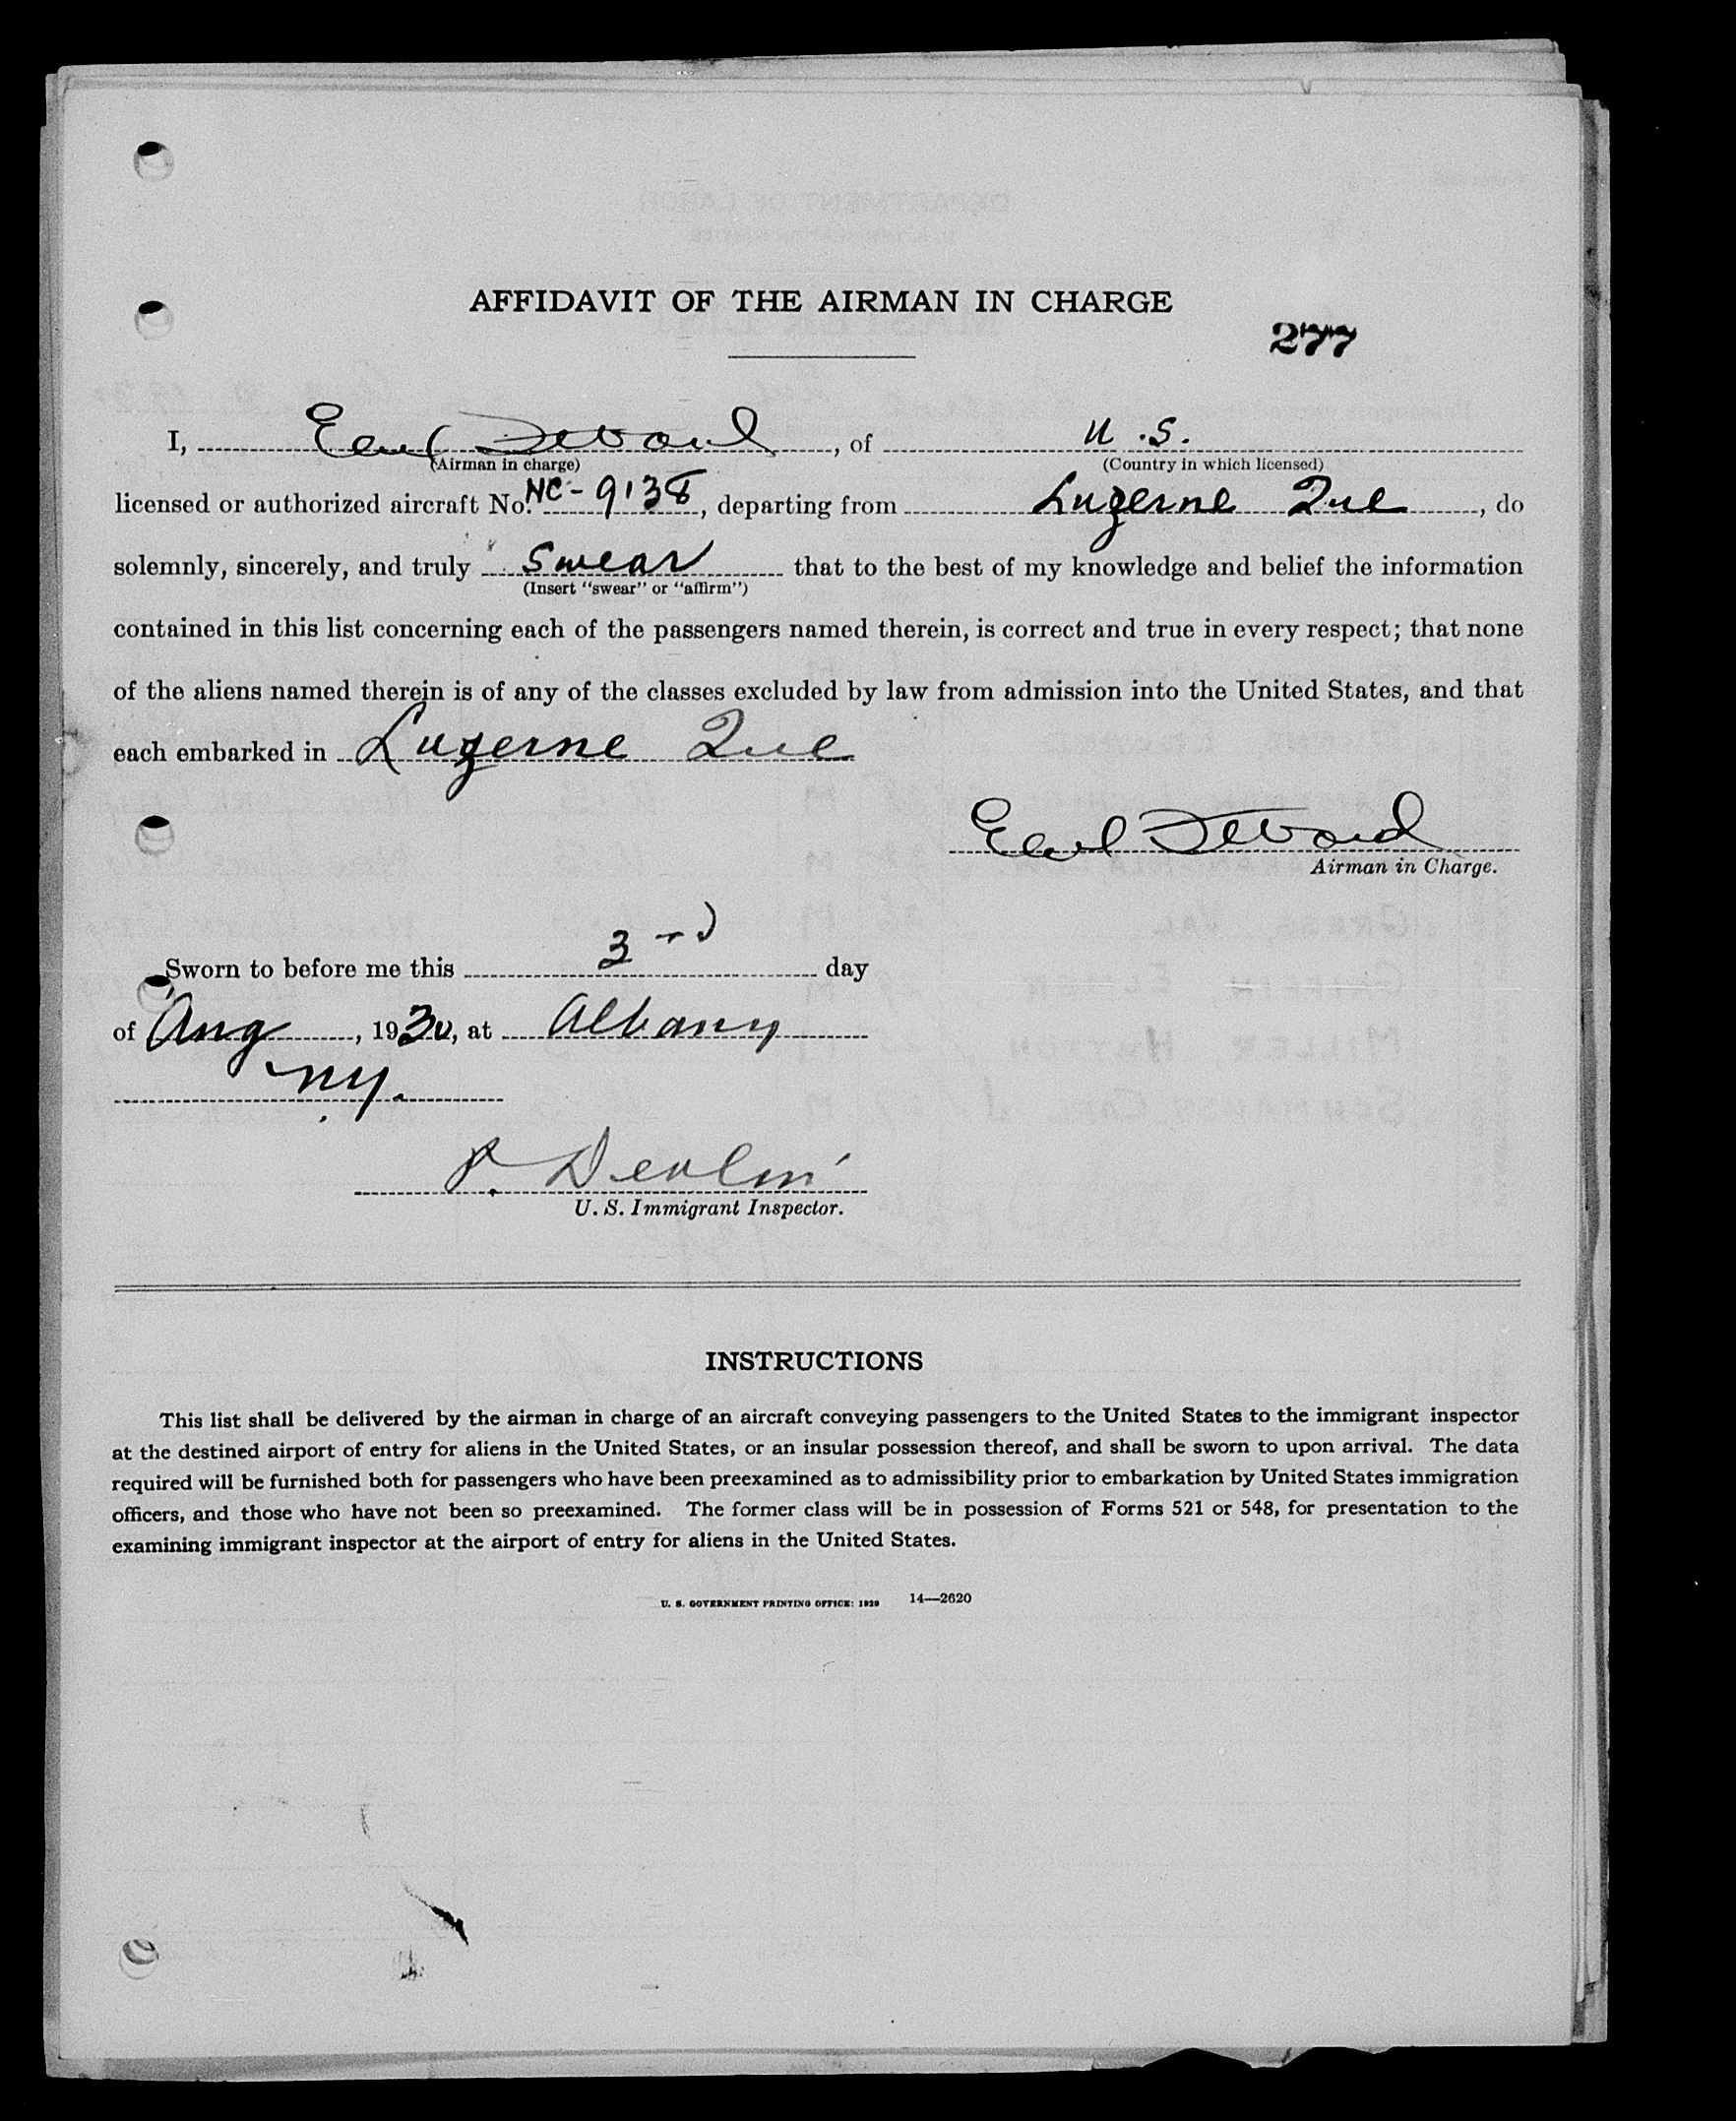 AFFIDAVIT OF THE AIRMAN IN CHARGE
277
I, Earl, of U.S.
(Airman in charge) (Country in which licensed)
licensed or authorized aircraft No. NC-9138, departing from Luzerne Que, do
solemnly, sincerely, and truly swear that to the best of my knowledge and belief the information
(Insert "swear" or "affirm")
contained in this list concerning each of the passengers named therein, is correct and true in every respect; that none
of the aliens named therein is of any of the classes excluded by law from admission into the United States, and that
each embarked in Luzerne Que
Earl
Airman in Charge.
Sworn to before me this 3rd day
of Aug, 1930, at Albany
N.Y.
P. Devlin
U. S. Immigrant Inspector.
INSTRUCTIONS
This list shall be delivered by the airman in charge of an aircraft conveying passengers to the United States to the immigrant inspector
at the destined airport of entry for aliens in the United States, or an insular possession thereof, and shall be sworn to upon arrival. The data
required will be furnished both for passengers who have been preexamined as to admissibility prior to embarkation by United States immigration
officers, and those who have not been so preexamined. The former class will be in possession of Forms 521 or 548, for presentation to the
examining immigrant inspector at the airport of entry for aliens in the United States.
U. S. GOVERNMENT PRINTING OFFICE: 1929 14—2620